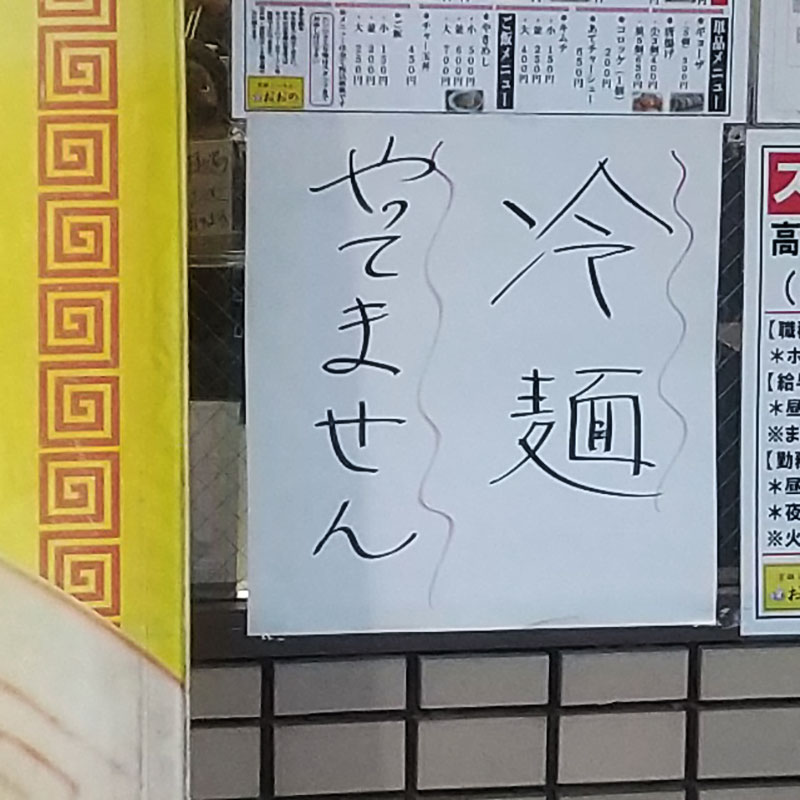 単品メニュー
ギョーザ
(5個) 300円
唐揚げ
コロッケ(1個)
200円
あてチャーシュー
550円
キムチ
・小 150円
・並 250円
・大 400円
ご飯メニュー
やきめし
・小 500円
・並 600円
・大 700円
チャー玉丼
450円
ご飯
・小 150円
・並 200円
・大 250円
おおの
冷麺
やってません
ス
高
(
【職
＊ホ
【給与
＊昼
※ま
【勤務
＊昼
＊夜
※火
お